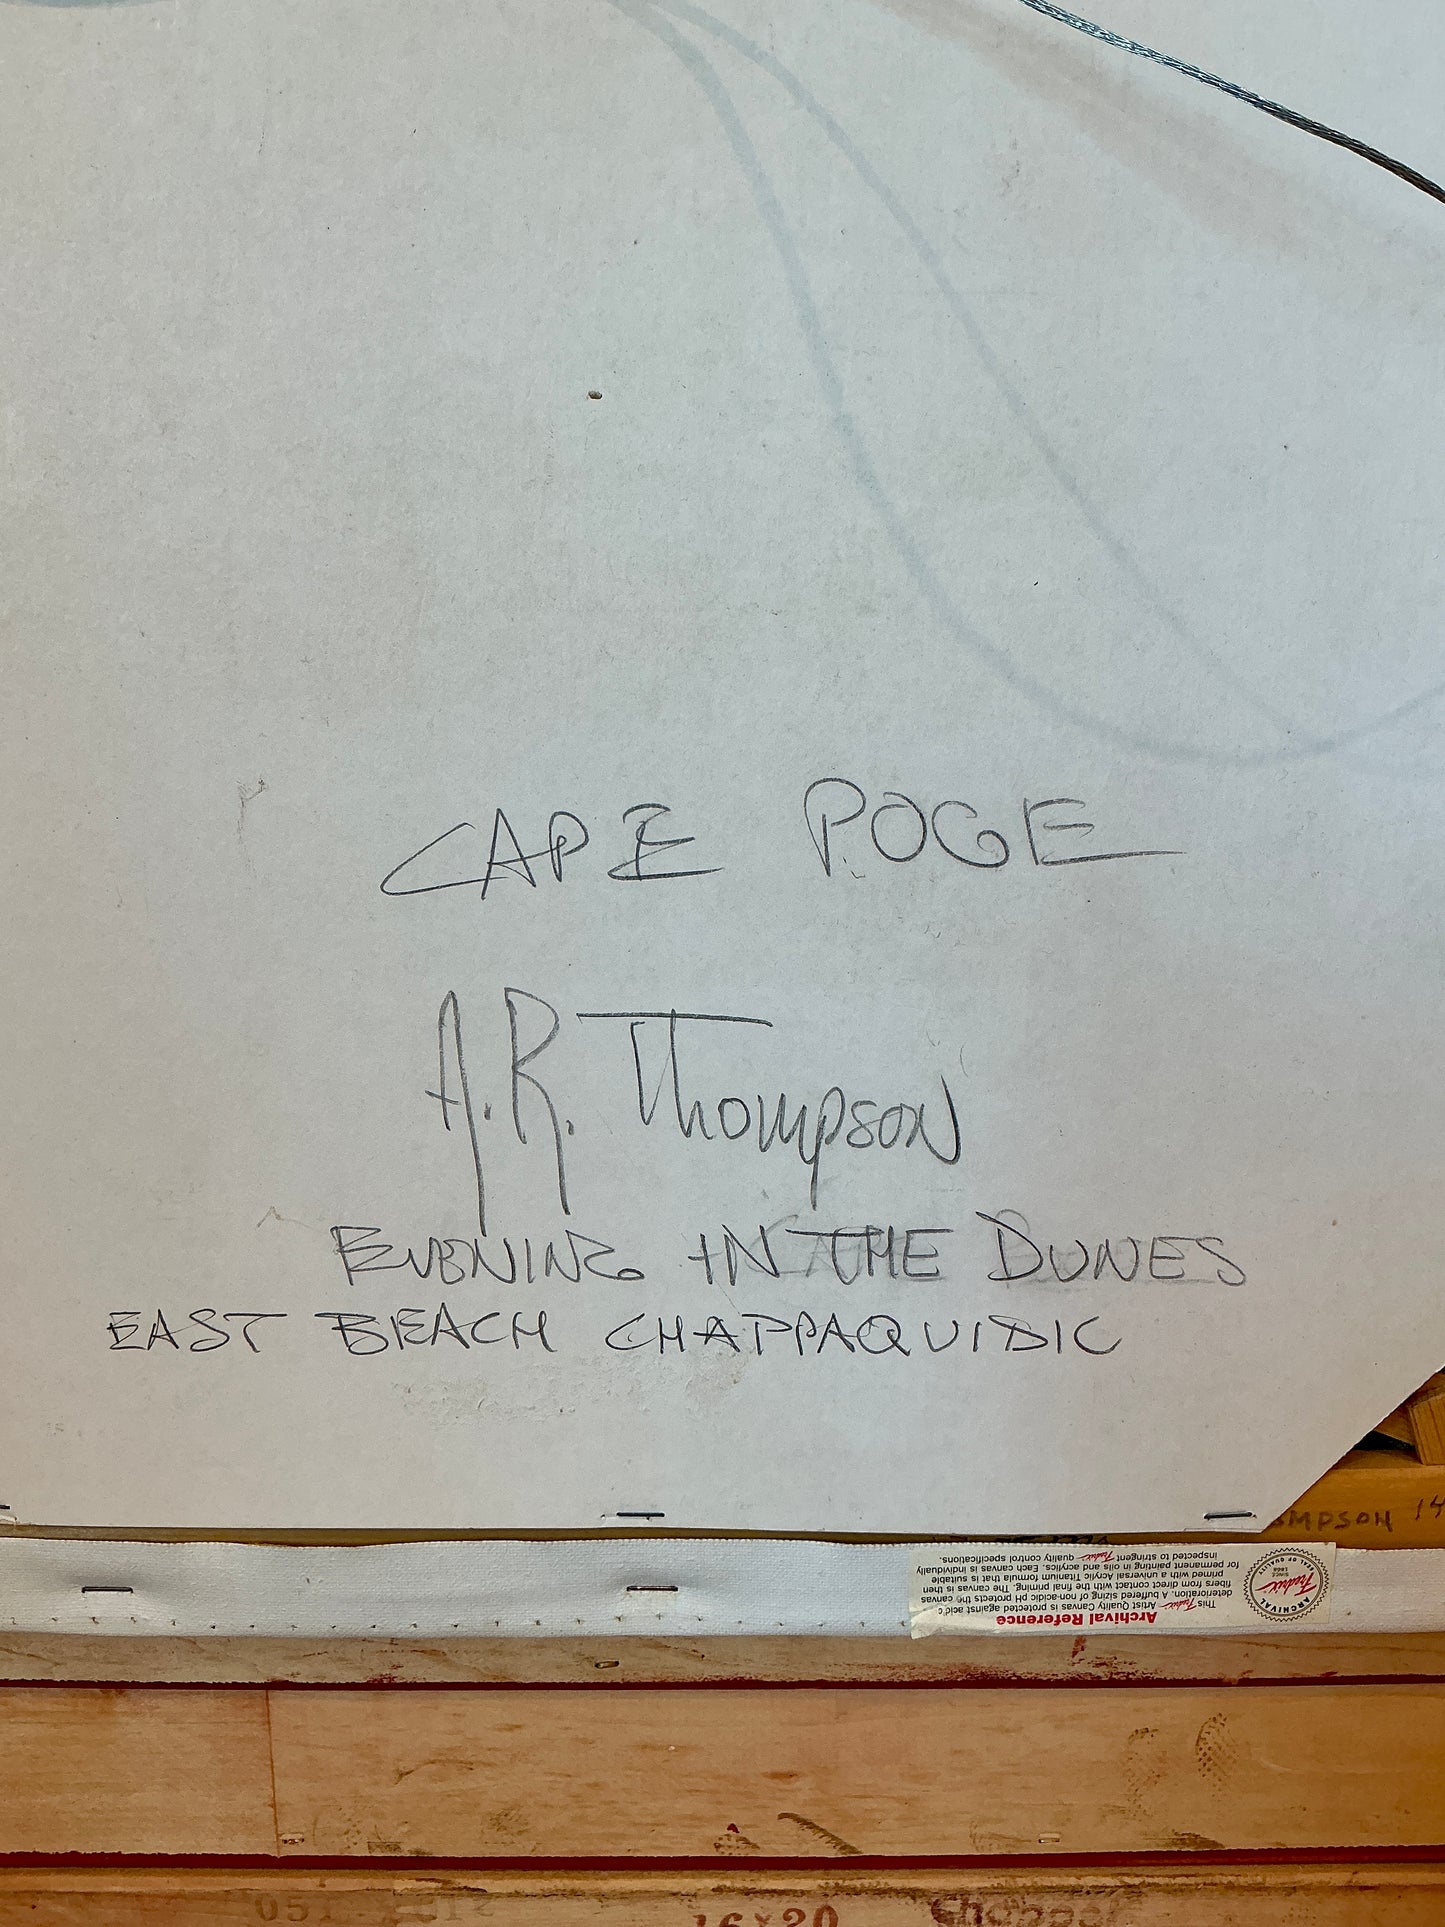 CAPE POGE
A.R. Thompson
EVENING IN THE DUNES
EAST BEACH CHAPPAQUIDIC
MPSON 14
Archival Reference
This Fredrix Artist Quality Canvas is protected against acidic
deterioration. A buffered sizing of non-acidic pH protects the canvas
fibers from direct contact with the final priming. The canvas is then
primed with a universal Acrylic Titanium formula that is suitable
for permanent painting in oils and acrylics. Each canvas is individually
inspected to stringent Fredrix quality control specifications.
ARCHIVAL
Fredrix
SINCE 1868
SEAL OF QUALITY
051
16×20